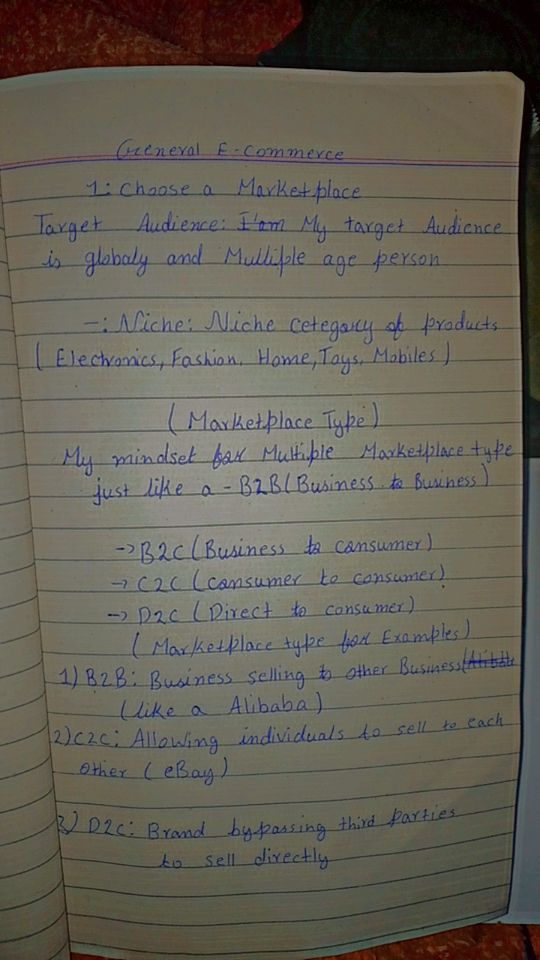 General E-commerce
1: Choose a Marketplace
Target Audience: I'am My target Audience
is globaly and Multiple age person
-: Niche: Niche cetegory of products
(Electronics, Fashion, Home, Toys, Mobiles)
(Marketplace Type)
My mindset for Multiple Marketplace type
just like a - B2B (Business to Business)
→ B2C (Business to consumer)
→ C2C (consumer to consumer)
→ D2C (Direct to consumer)
(Marketplace type for Examples)
1) B2B: Business selling to other Business
(like a Alibaba)
2) C2C: Allowing individuals to sell to each
other (eBay)
3) D2C: Brand bypassing third parties
to sell directly